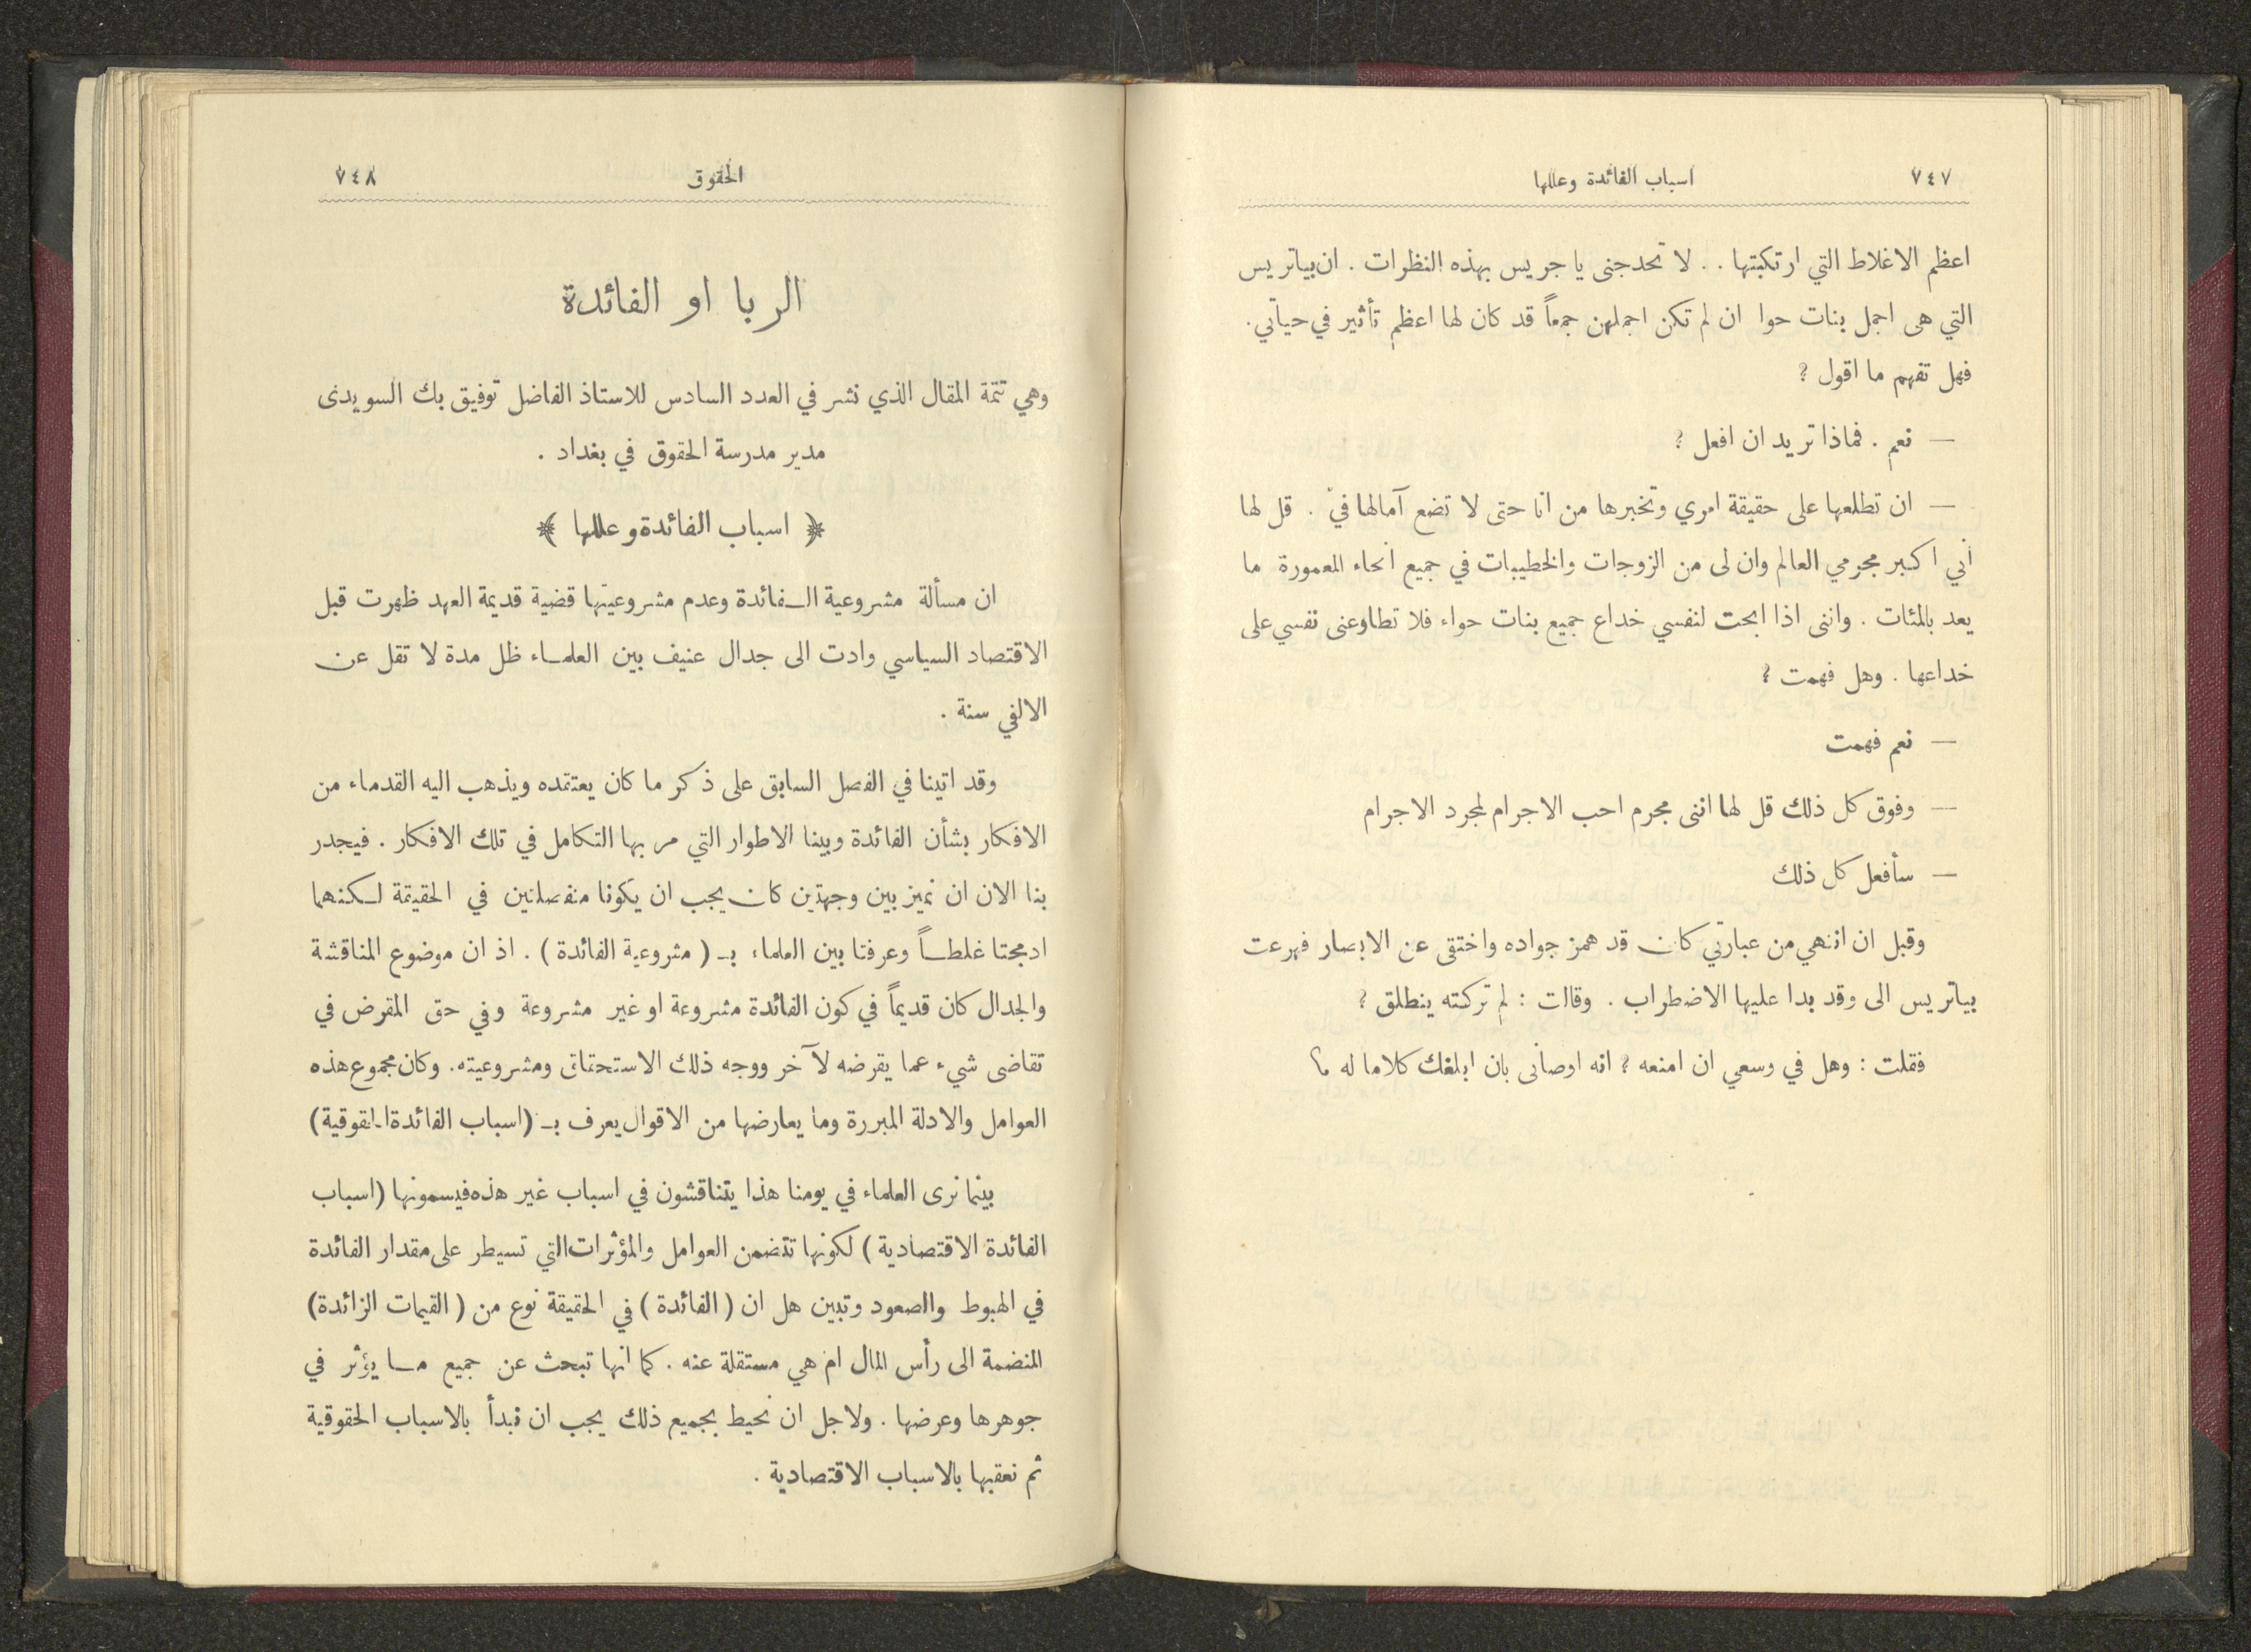 ٧٤٧
اسباب الفائدة وعللها
اعظم الاغلاط التي ارتكبتها . . لا تحدجنى يا جريس بهذه النظرات . ان بياتريس
التي هى اجمل بنات حوا ان لم تكن اجملهن جمعاً قد كان لها اعظم تأثير في حياتي .
فهل تفهم ما اقول ؟
— نعم . فماذا تريد ان افعل ؟
— ان تطلعها على حقيقة امري وتخبرها من انا حتى لا تضع آمالها فيّ . قل لها
أني اكبر مجرمي العالم وان لى من الزوجات والخطيبات في جميع انحاء المعمورة ما
يعد بالمئات . واننى اذا ابحت لنفسي خداع جميع بنات حواء فلا تطاوعنى نفسي على
خداعها . وهل فهمت ؟
— نعم فهمت
— وفوق كل ذلك قل لها اننى مجرم احب الاجرام لمجرد الاجرام
— سأفعل كل ذلك
وقبل ان انتهي من عبارتي كان قد همز جواده واختفى عن الابصار فهرعت
بياتريس الى وقد بدا عليها الاضطراب . وقالت : لم تركته ينطلق ؟
فقلت : وهل في وسعي ان امنعه ؟ انه اوصانى بان ابلغك كلاما له ؟
الحقوق
٧٤٨
الربا او الفائدة
وهي تتمة المقال الذي نشر في العدد السادس للاستاذ الفاضل توفيق بك السويدى
مدير مدرسة الحقوق في بغداد .
﴿ اسباب الفائدة وعللها ﴾
ان مسألة مشروعية الـفائدة وعدم مشروعيتها قضية قديمة العهد ظهرت قبل
الاقتصاد السياسي وادت الى جدال عنيف بين العلمـاء ظل مدة لا تقل عن
الالفي سنة .
وقد اتينا في الفصل السابق على ذكر ما كان يعتقده ويذهب اليه القدماء من
الافكار بشأن الفائدة وبينا الاطوار التي مر بها التكامل في تلك الافكار . فيجدر
بنا الان ان نميز بين وجهتين كان يجب ان يكونا منفصلتين في الحقيقة لـكنهما
ادمجتا غلطـاً وعرفتا بين العلماء بـ ( مشروعية الفائدة ) . اذ ان موضوع المناقشة
والجدال كان قديماً في كون الفائدة مشروعة او غير مشروعة وفي حق المقرض في
تقاضى شيء عما يقرضه لآخر ووجه ذلك الاستحقاق ومشروعيته . وكان مجموع هذه
العوامل والادلة المبررة وما يعارضها من الاقوال يعرف بـ (اسباب الفائدة الحقوقية)
بينما نرى العلماء في يومنا هذا يتناقشون في اسباب غير هذه فيسمونها (اسباب
الفائدة الاقتصادية ) لكونها تتضمن العوامل والمؤثرات التي تسيطر على مقدار الفائدة
في الهبوط والصعود وتبين هل ان ( الفائدة ) في الحقيقة نوع من ( القيمات الزائدة)
المنضمة الى رأس المال ام هي مستقلة عنه . كما انها تبحث عن جميع مـا يؤثر في
جوهرها وعرضها . ولاجل ان نحيط بجميع ذلك يجب ان نبدأ بالاسباب الحقوقية
ثم نعقبها بالاسباب الاقتصادية .